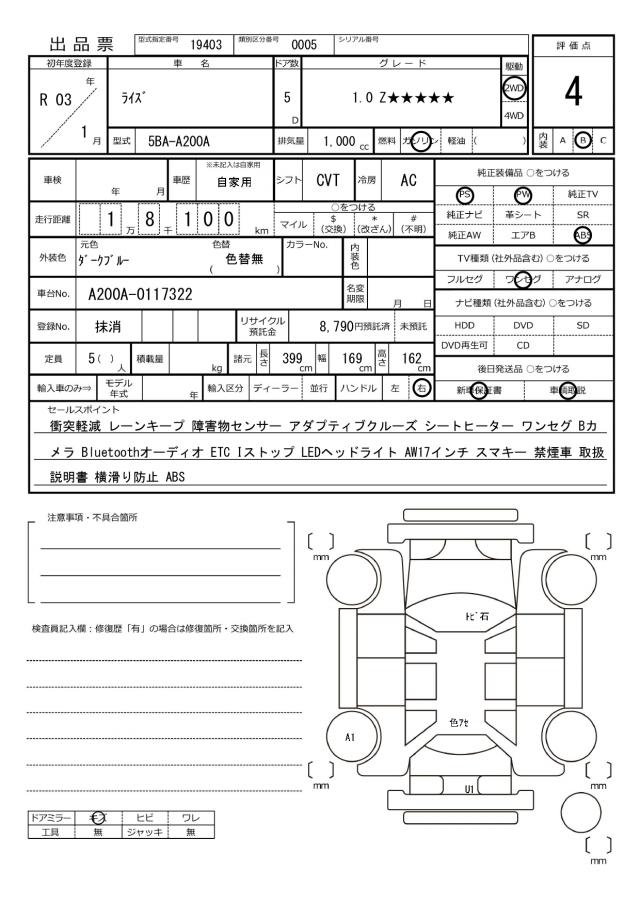 出品票 型式指定番号 19403 類別区分番号 0005 シリアル番号
初年度登録 車名 ドア数 グレード 駆動 評価点
R 03 年 1 月 ﾗｲｽﾞ 5 D 1.0 Z★★★★★ 2WD 4WD 4
型式 5BA-A200A 排気量 1,000 cc 燃料 ガソリン 軽油 ( ) 内装 A B C
車検 年 月 車歴 ※未記入は自家用 自家用 シフト CVT 冷房 AC 純正装備品 ○をつける
PS PW 純正TV
走行距離 1 万 8 千 1 0 0 km ○をつける
マイル $ (交換) * (改ざん) # (不明)
純正ナビ 革シート SR
純正AW エアB ABS
外装色 元色 ﾀﾞｰｸﾌﾞﾙｰ 色替 ( 色替無 ) カラーNo. 内装色
TV種類 (社外品含む) ○をつける
フルセグ ワンセグ アナログ
車台No. A200A-0117322 名変期限 月 日
ナビ種類 (社外品含む) ○をつける
登録No. 抹消 リサイクル預託金 8,790円預託済 未預託
HDD DVD SD
DVD再生可 CD
定員 5 ( ) 人 積載量 kg 諸元 長さ 399 cm 幅 169 cm 高さ 162 cm
後日発送品 ○をつける
輸入車のみ⇒ モデル年式 年 輸入区分 ディーラー 並行 ハンドル 左 右
新車保証書 車輌取説
セールスポイント
衝突軽減 レーンキープ 障害物センサー アダプティブクルーズ シートヒーター ワンセグ Bカ
メラ Bluetoothオーディオ ETC Iストップ LEDヘッドライト AW17インチ スマキー 禁煙車 取扱
説明書 横滑り防止 ABS
注意事項・不具合箇所
検査員記入欄：修復歴「有」の場合は修復箇所・交換箇所を記入
mm
mm
ﾄﾋﾞ石
色ｱｾ
A1
U1
mm
mm
mm
ドアミラー キズ ヒビ ワレ
工具 無 ジャッキ 無